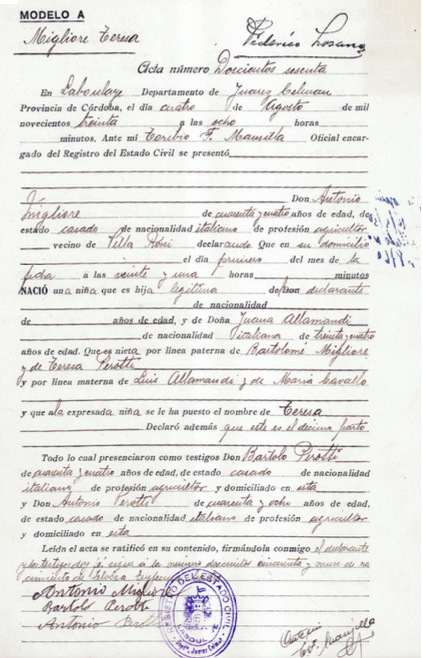 MODELO A
Migliore Teresa
Federico Losano
Acta número Doscientos sesenta
En Laboulaye Departamento de Juarez Celman
Provincia de Córdoba, el día cuatro de Agosto de mil
novecientos treinta a las ocho horas
minutos. Ante mí Toribio F. Mansilla Oficial encar-
gado del Registro del Estado Civil se presentó
Don Antonio
Migliore de cuarenta y cuatro años de edad, de
estado casado de nacionalidad italiano de profesión agricultor
vecino de Villa Rossi declarando Que en su domicilio
el día primero del mes de la
fecha a las veinte y una horas minutos
NACIÓ una niña que es hija legitima del declarante
de nacionalidad
de años de edad, y de Doña Juana Allamandi
de nacionalidad italiana de treinta y cuatro
años de edad. Que es nieta por línea paterna de Bartolomé Migliore
y de Teresa Perotti
y por línea materna de Luis Allamandi y de Maria Cavallo
y que a la expresada niña se le ha puesto el nombre de Teresa
Declaró además que este es el decimo parto
Todo lo cual presenciaron como testigos Don Bartolo Perotti
de cuarenta y cuatro años de edad, de estado casado de nacionalidad
italiano de profesión agricultor y domiciliado en esta
y Don Antonio Perotti de cuarenta y ocho años de edad,
de estado casado de nacionalidad italiano de profesión agricultor
y domiciliado en esta
Leída el acta se ratificó en su contenido, firmándola conmigo el declarante
y los testigos doy fé, sigue a la numero doscientos cincuenta y nueve de na
cimiento de
Antonio Migliore
Bartolo Perotti
Antonio Perotti
REGISTRO DEL ESTADO CIVIL
LABOULAYE
Dpto. Juarez Celman